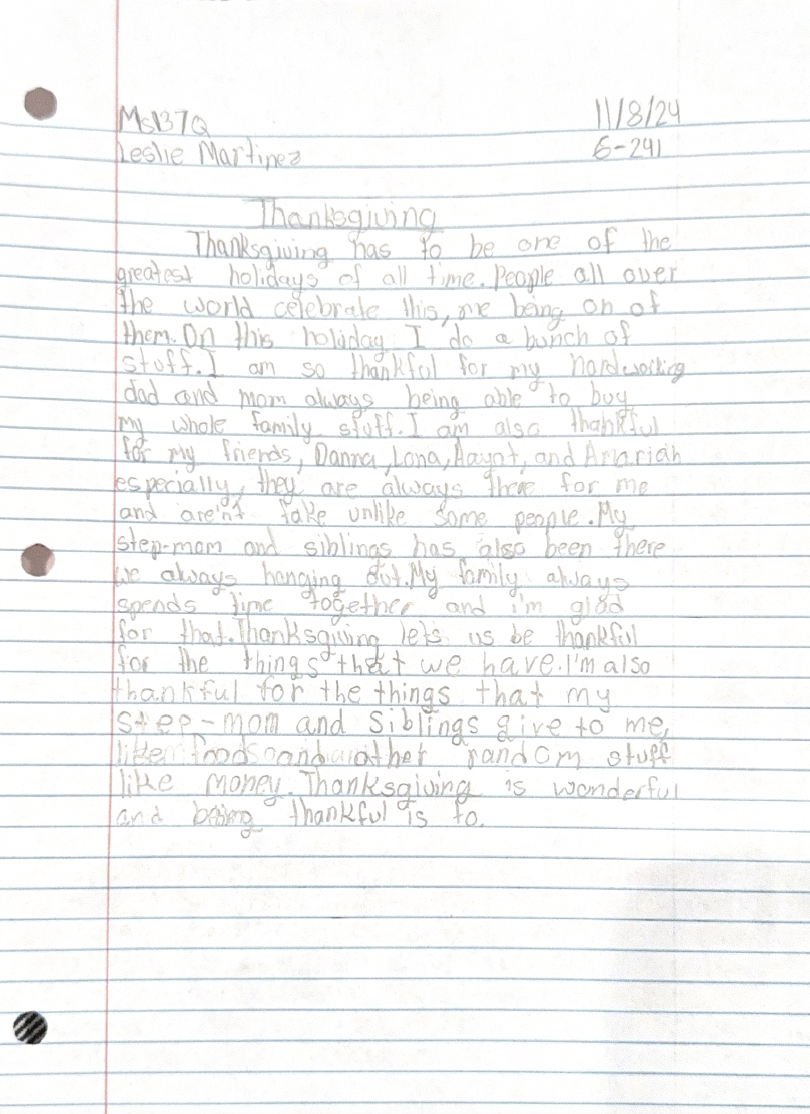 MS137Q 11/8/24
Leslie Martinez 6-241
Thanksgiving
Thanksgiving has to be one of the
greatest holidays of all time. People all over
the world celebrate this, me being on of
them. On this holiday I do a bunch of
stuff. I am so thankful for my hardworking
dad and mom always being able to buy
my whole family stuff. I am also thankful
for my friends, Danna, Lona, and
especially, they are always there for me
and are'nt fake unlike some people. My
step-mom and siblings has also been there
we always hanging out. My family always
spends time together and i'm glad
for that. Thanksgiving lets us be thankful
for the things that we have. I'm also
thankful for the things that my
step-mom and siblings give to me,
like foods and other random stuff
like money. Thanksgiving is wonderful
and being thankful is to.